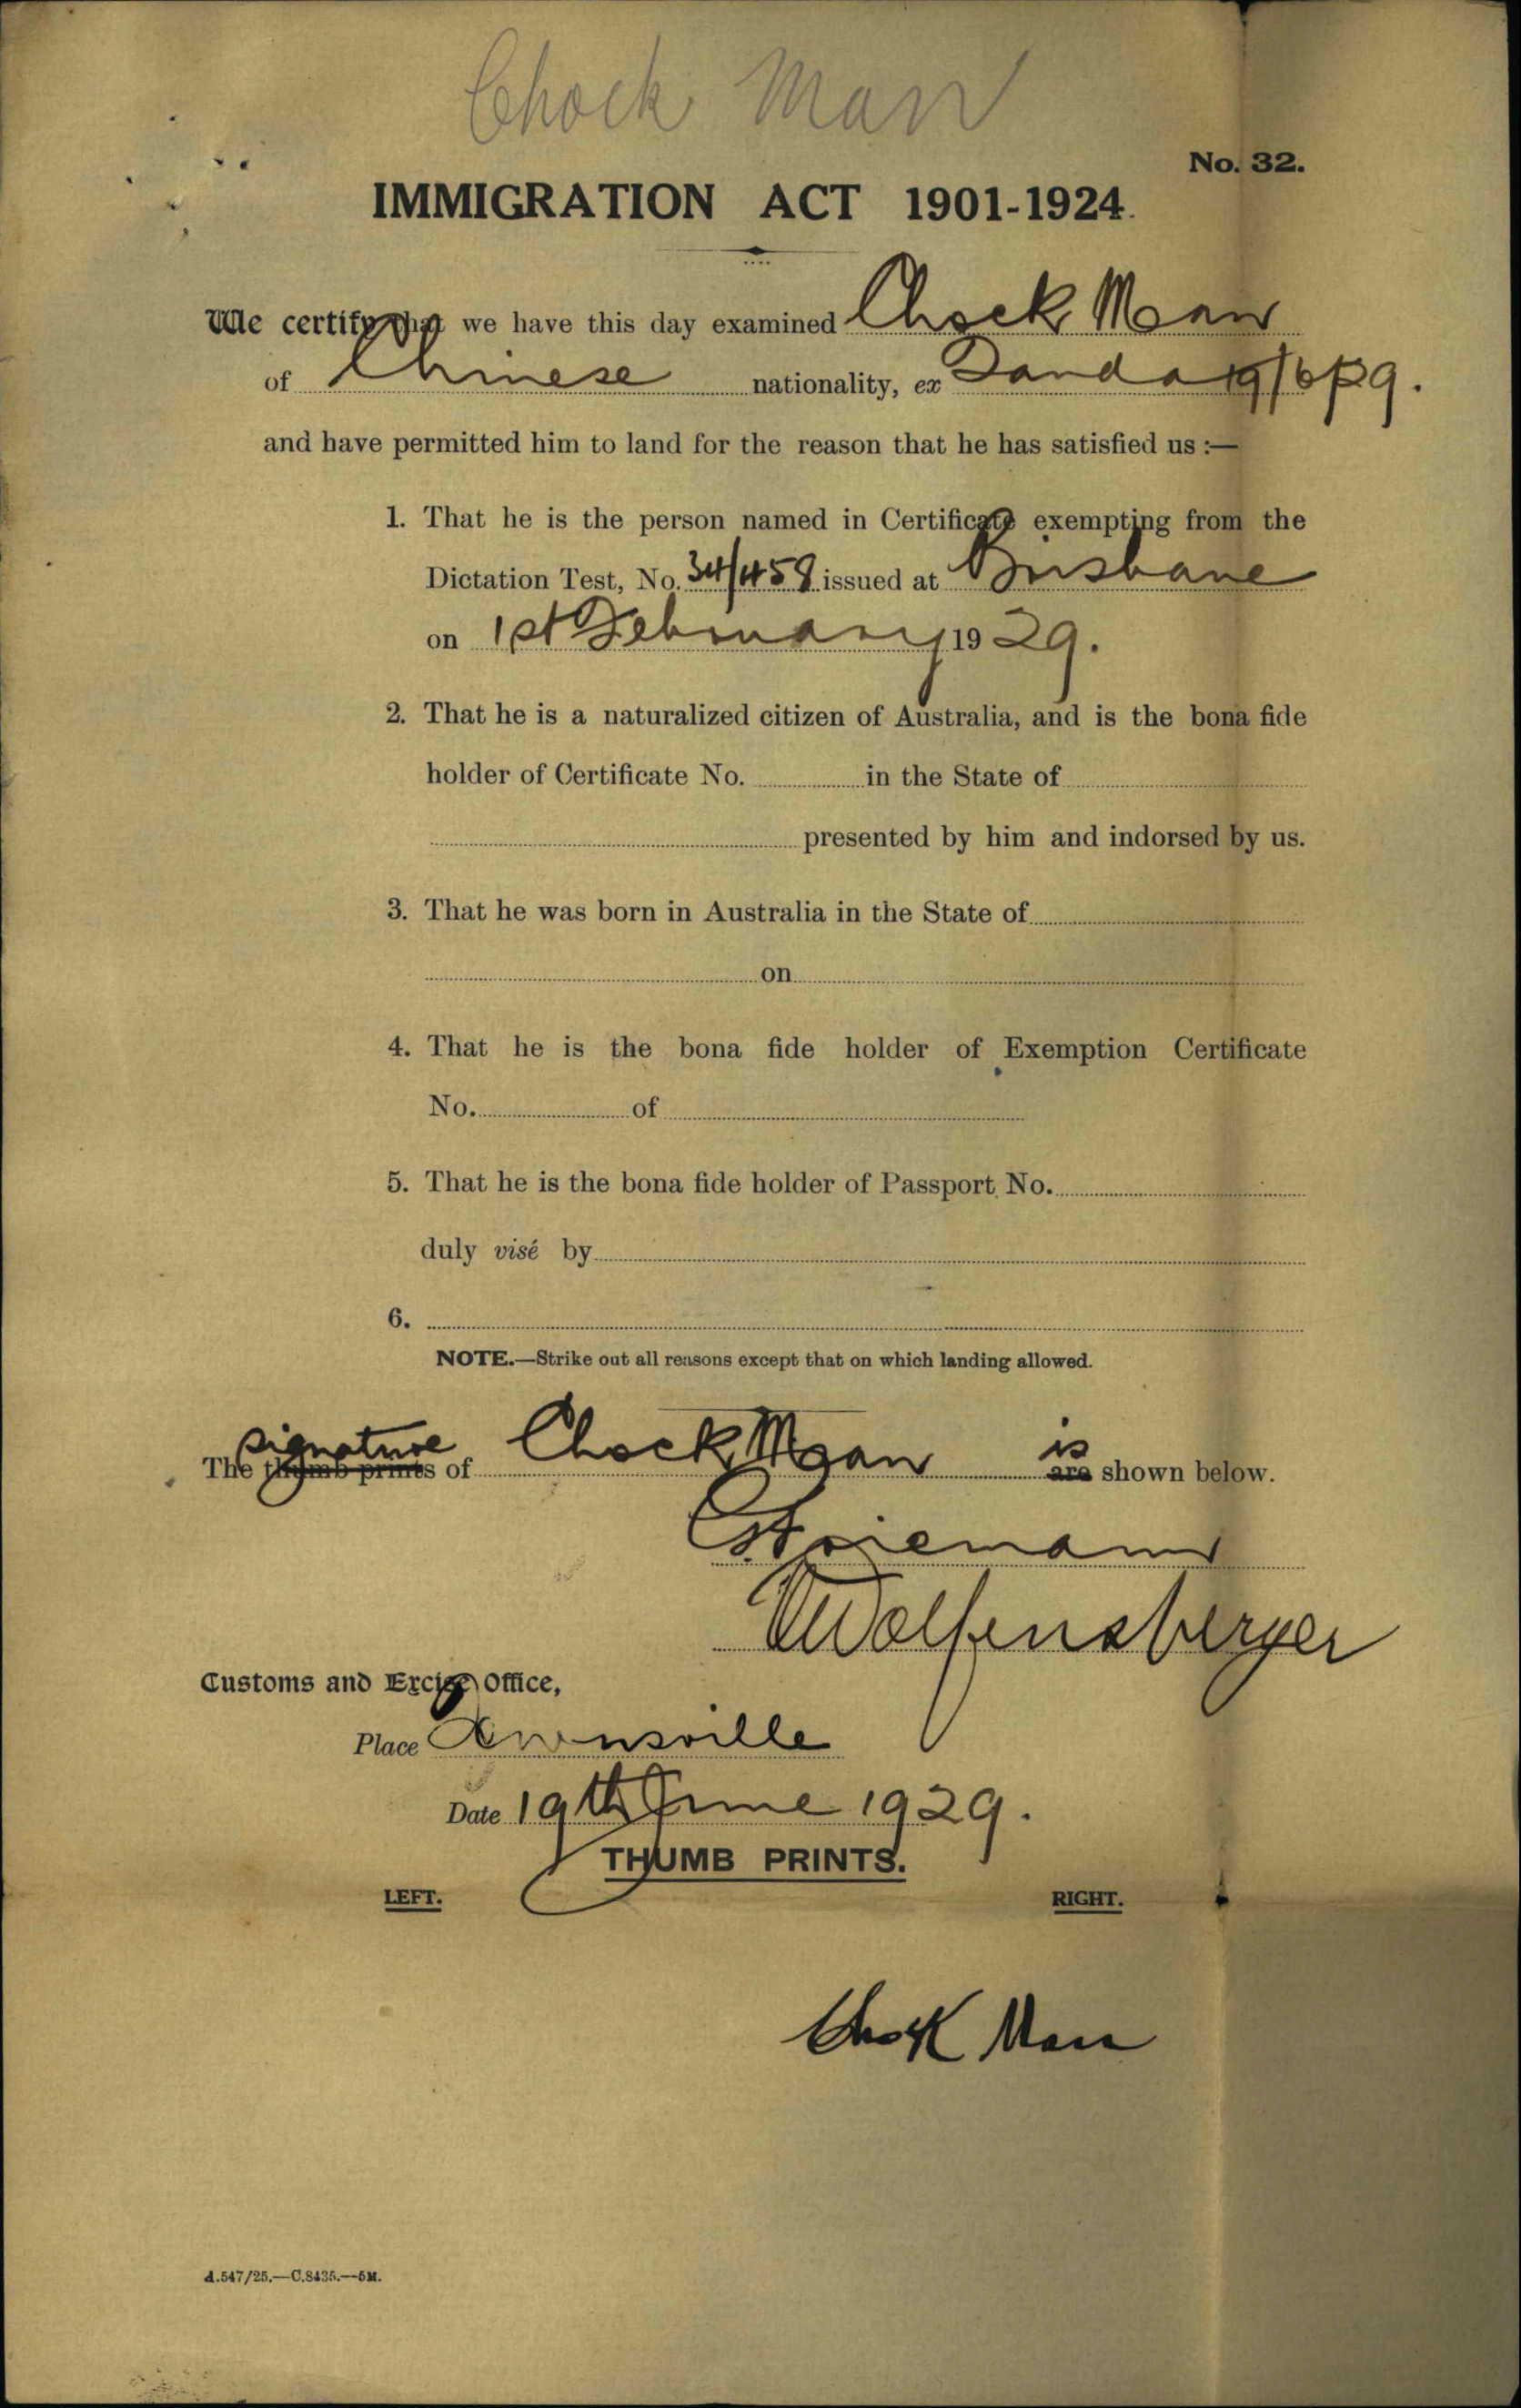 Chock Man
No. 32.
IMMIGRATION ACT 1901-1924.
We certify that we have this day examined Chock Man
of Chinese nationality, ex Tanda 19/6/29.
and have permitted him to land for the reason that he has satisfied us :—
1. That he is the person named in Certificate exempting from the
Dictation Test, No. issued at Brisbane
on 1st February 1929.
2. That he is a naturalized citizen of Australia, and is the bona fide
holder of Certificate No. in the State of
presented by him and indorsed by us.
3. That he was born in Australia in the State of
on
4. That he is the bona fide holder of Exemption Certificate
No. of
5. That he is the bona fide holder of Passport No.
duly visé by
6.
NOTE.—Strike out all reasons except that on which landing allowed.
signature is
The thumb prints of Chock Man are shown below.
Wolfensberger
Customs and Excise Office,
Place Townsville
Date 19th June 1929.
THUMB PRINTS.
LEFT. RIGHT.
Chock Man
A.547/25.—C.8435.—5M.